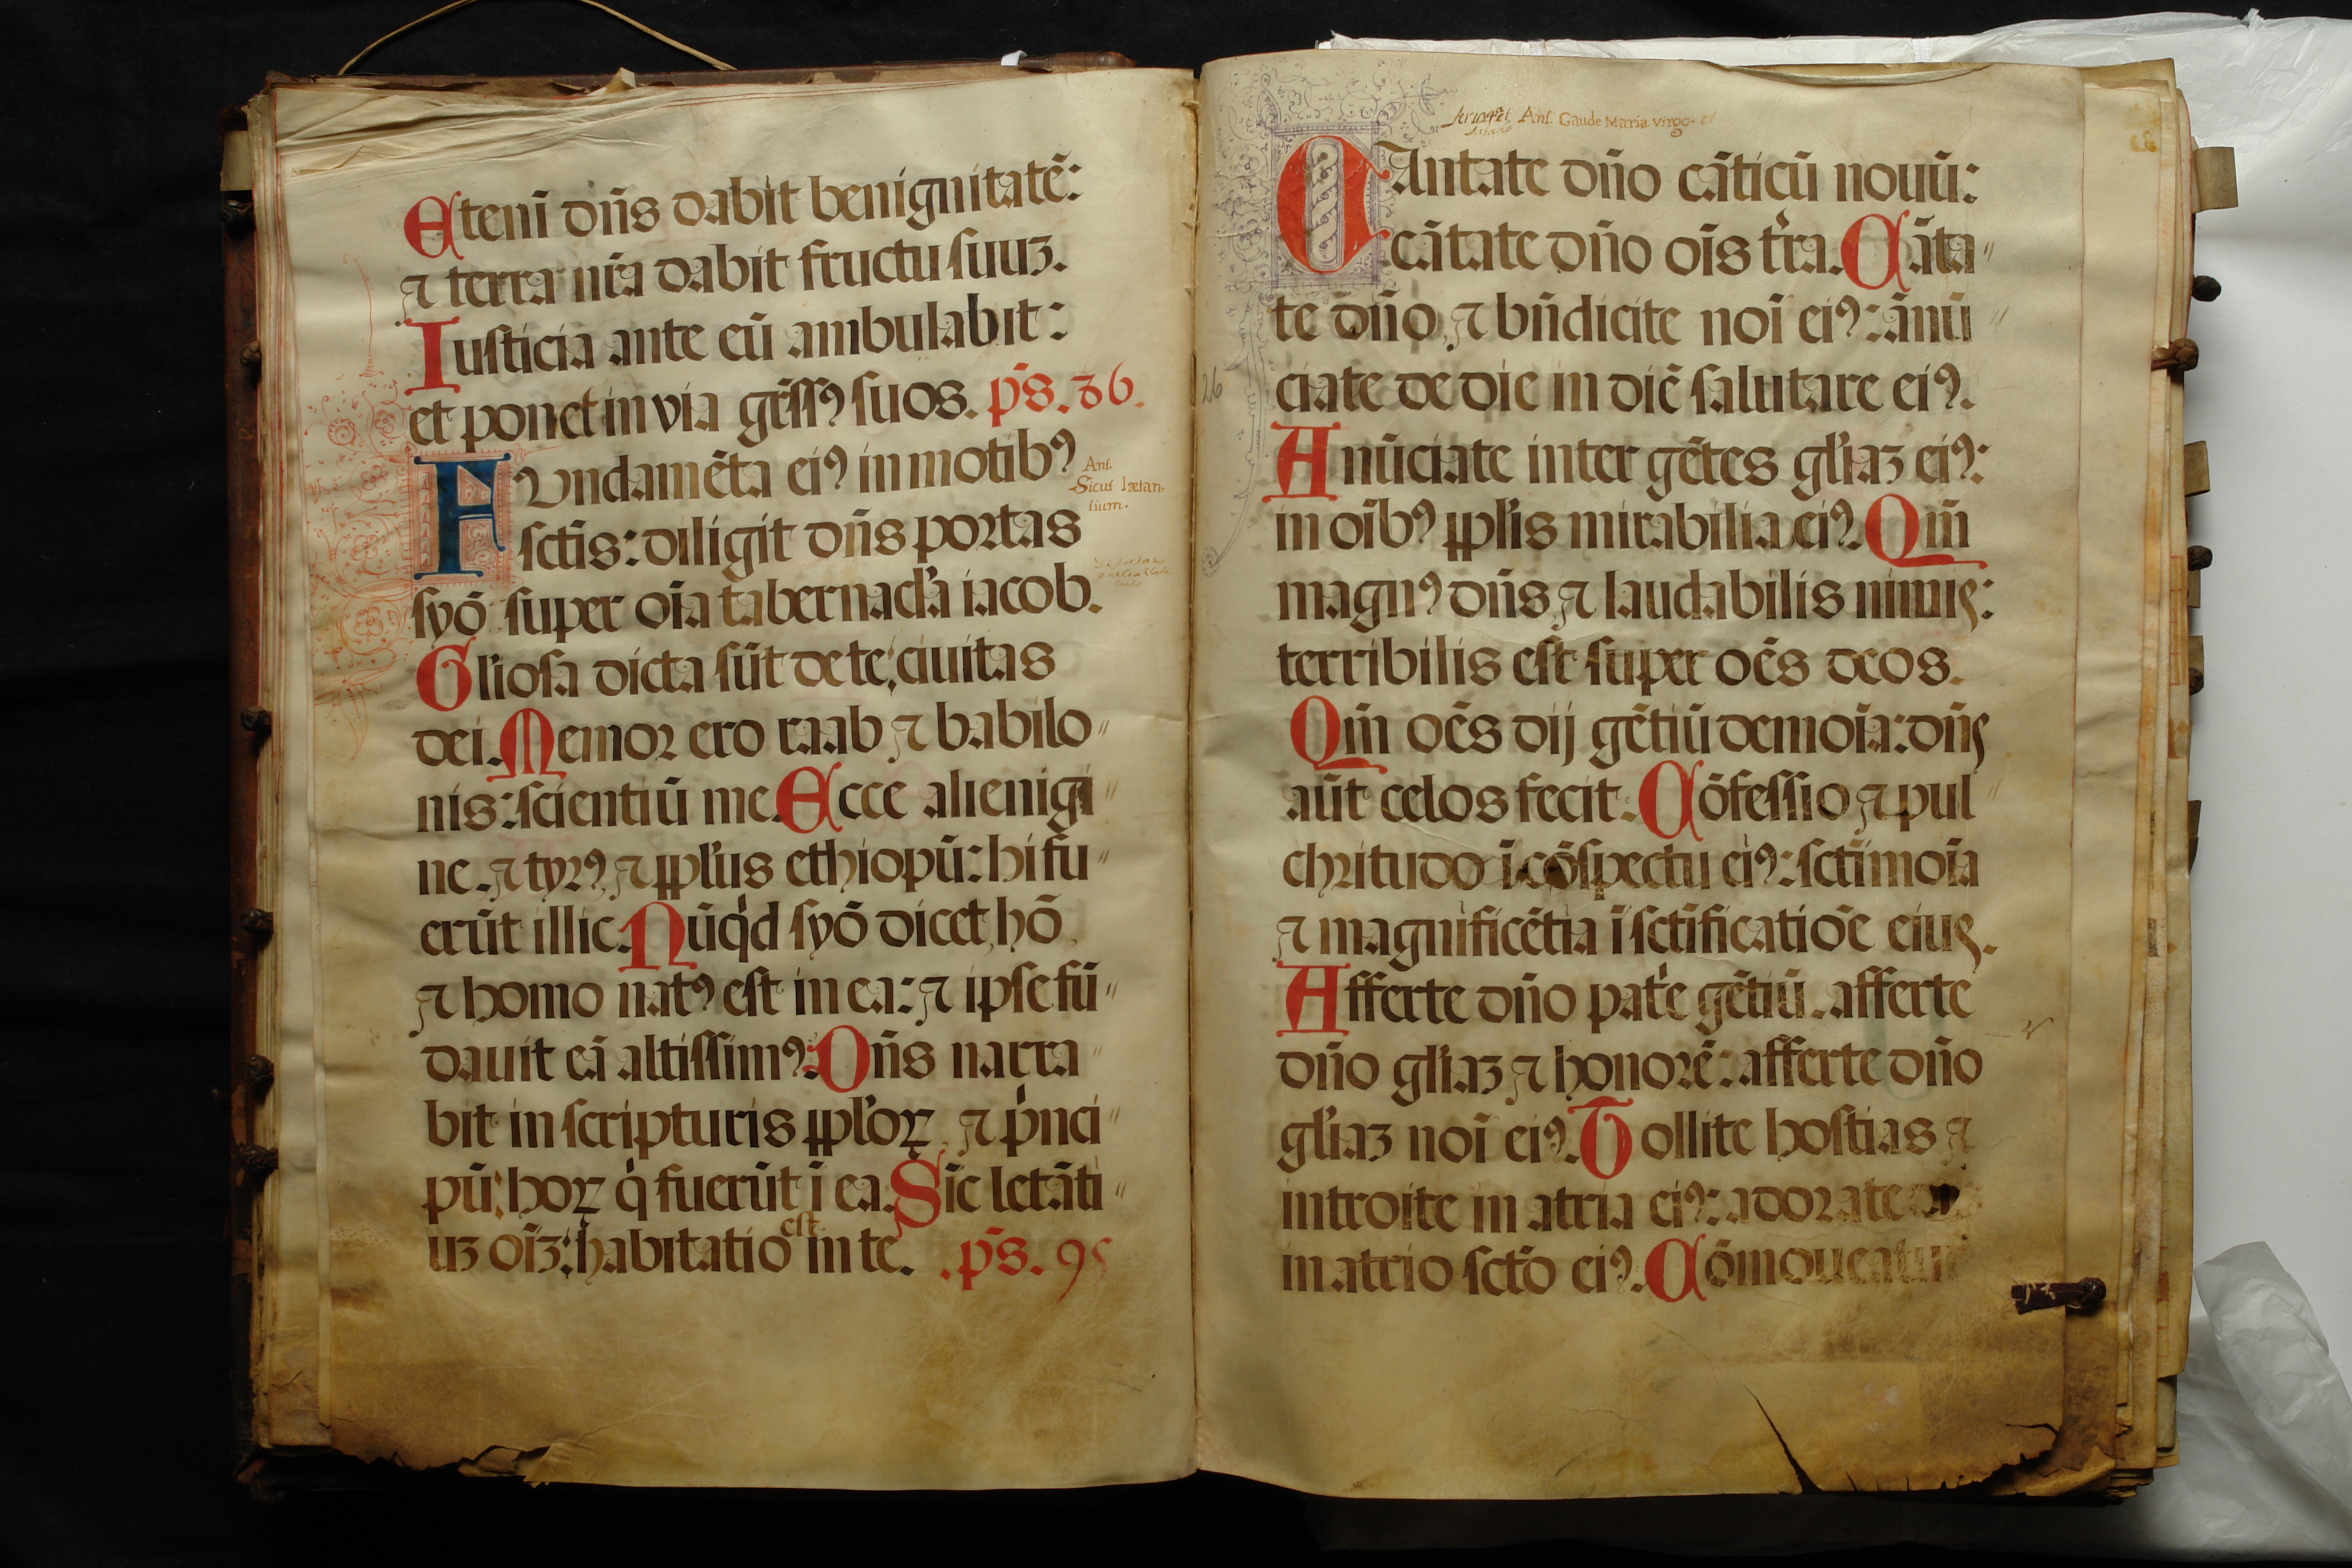 Eteni dn̄s dabit benignitatē:
⁊ terra nr̄a dabit fructu ſuuꝫ.
Iuſticia ante eū ambulabit:
et ponet in via gr̄ēſſꝰ ſuos. pˉs. 36.
FVndamēta eiꝰ in motibꝰ
ſctīs: diligit dn̄s poꝛtas
ſyō ſuper oīa tabernacl̓a iacob.
Gl̓ioſa dicta ſūt de te: ciuitas
dei. Memoꝛ ero raab ⁊ babilo〃
nis: ſcientiū me. Ecce alienigi〃
ne. ⁊ tyrꝰ, ⁊ ppl̓us ethiopū: hi fu〃
erūt illic. Nūqd̓ ſyō dicet, hō
⁊ homo natꝰ eſt in ea: ⁊ ipſe fū〃
dauit eā altiſſimꝰ: Dn̄s narra〃
bit in ſcripturis ppl̓oꝝ, ⁊ p̓nci〃
pū: hoꝝ q̓ fuerūt ī ea. Sic̄ letāti〃
uꝫ oīꝫ: habitatio eſt in te. .pˉs. 95
Ant.
Sicut lætan-
tium.
Ant. Gaude Maria virgo.
CAntate dn̄o cāticū nouū:
cātate dn̄o oīs tr̄a. Cāta〃
te dn̄o, ⁊ bn̄dicite noī eiꝰ: ānū〃
26
ciate de die in diē ſalutare eiꝰ.
Anūciate inter gētes gl̓iaꝫ eiꝰ:
in oībꝰ ppl̓is mirabilia eiꝰ. Qm̄
magnꝰ dn̄s, ⁊ laudabilis nimis:
terribilis eſt ſuper oēs deos.
Qm̄ oēs dij gētiū demoīa: dn̄s
aūt celos fecit. Cōfeſſio ⁊ pul〃
chꝛitudo ī cōſpectu eiꝰ: ſctīmoīa
⁊ magnificētia ī ſctīficatiōe eius.
Afferte dn̄o patr̓e gētiū. afferte
dn̄o gl̓iaꝫ ⁊ honoꝛē: afferte dn̄o
gl̓iaꝫ noī eiꝰ. Tollite hoſtias ⁊
introite in atria eiꝰ: adoꝛate
in atrio ſctō eiꝰ. Cōmoueatur